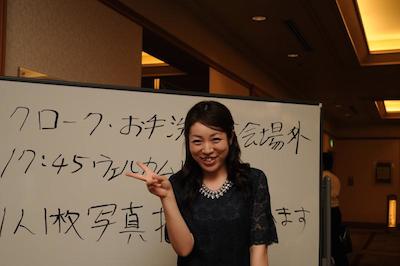 クローク・お手洗 会場外
17:45 ウェルカム
1人1枚写真 ます